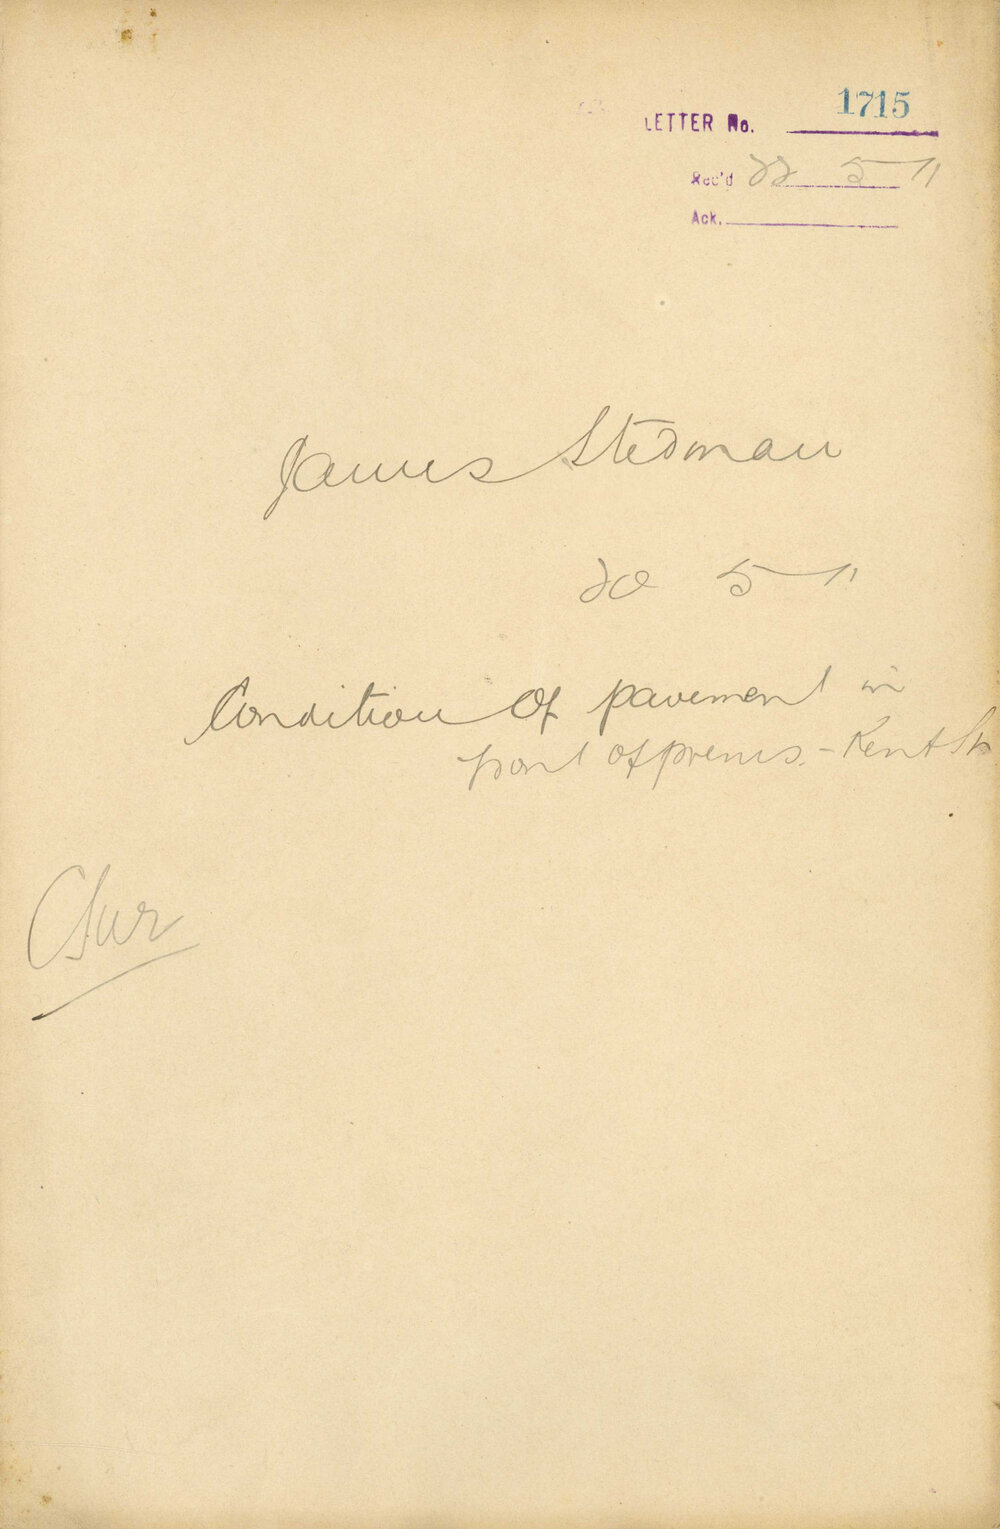 LETTER No. 1715
Rec'd 22 5 11
Ack.
James Stedman
20 5 11
Condition of pavement in
front of prems. - Kent St
C Sur